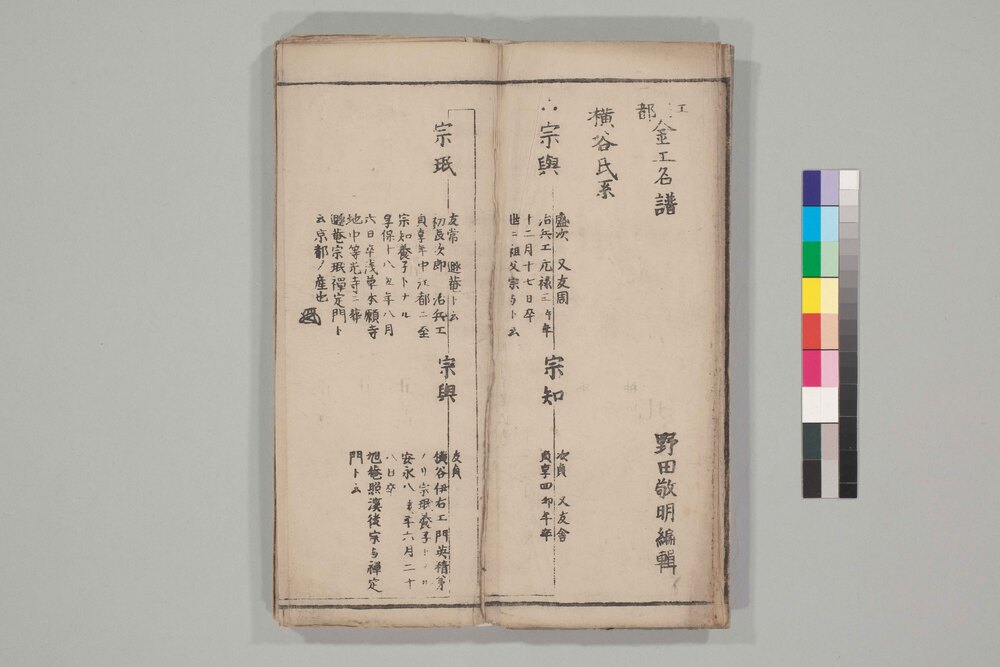 江都金工名譜
野田敬明編輯
横谷氏系
宗與
盛次 又友周
治兵工 元禄三午年
十二月十七日卒
世ニ祖父宗与ト云
宗知
次貞 又友舎
貞享四卯年卒
宗珉
友常 遯菴ト云
初長次郎 治兵工
貞享年中江都ニ至
宗知養子トナル
享保十八丑年八月
六日卒浅草本願寺
地中等光寺ニ葬
遯菴宗珉禅定門ト
云京都ノ産也
宗與
友貞
横谷伊右エ門英精弟
ノリ宗珉養子トナル
安永八亥年六月二十
八日卒
旭菴照漢後宗与禅定
門ト云